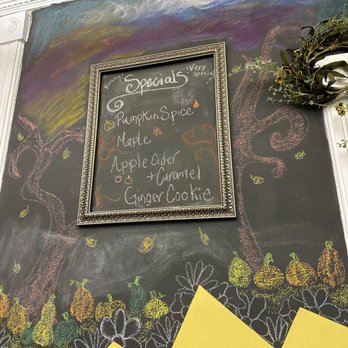 Specials
"Very
Special"
Pumpkin Spice
Maple
Apple Cider
+ Caramel
Ginger Cookie